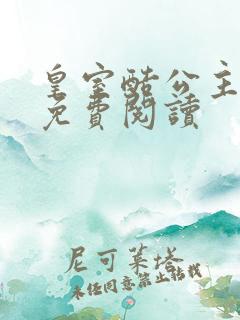 皇室酷公主
免費閱讀
尼可萊塔
未经同意禁止转载